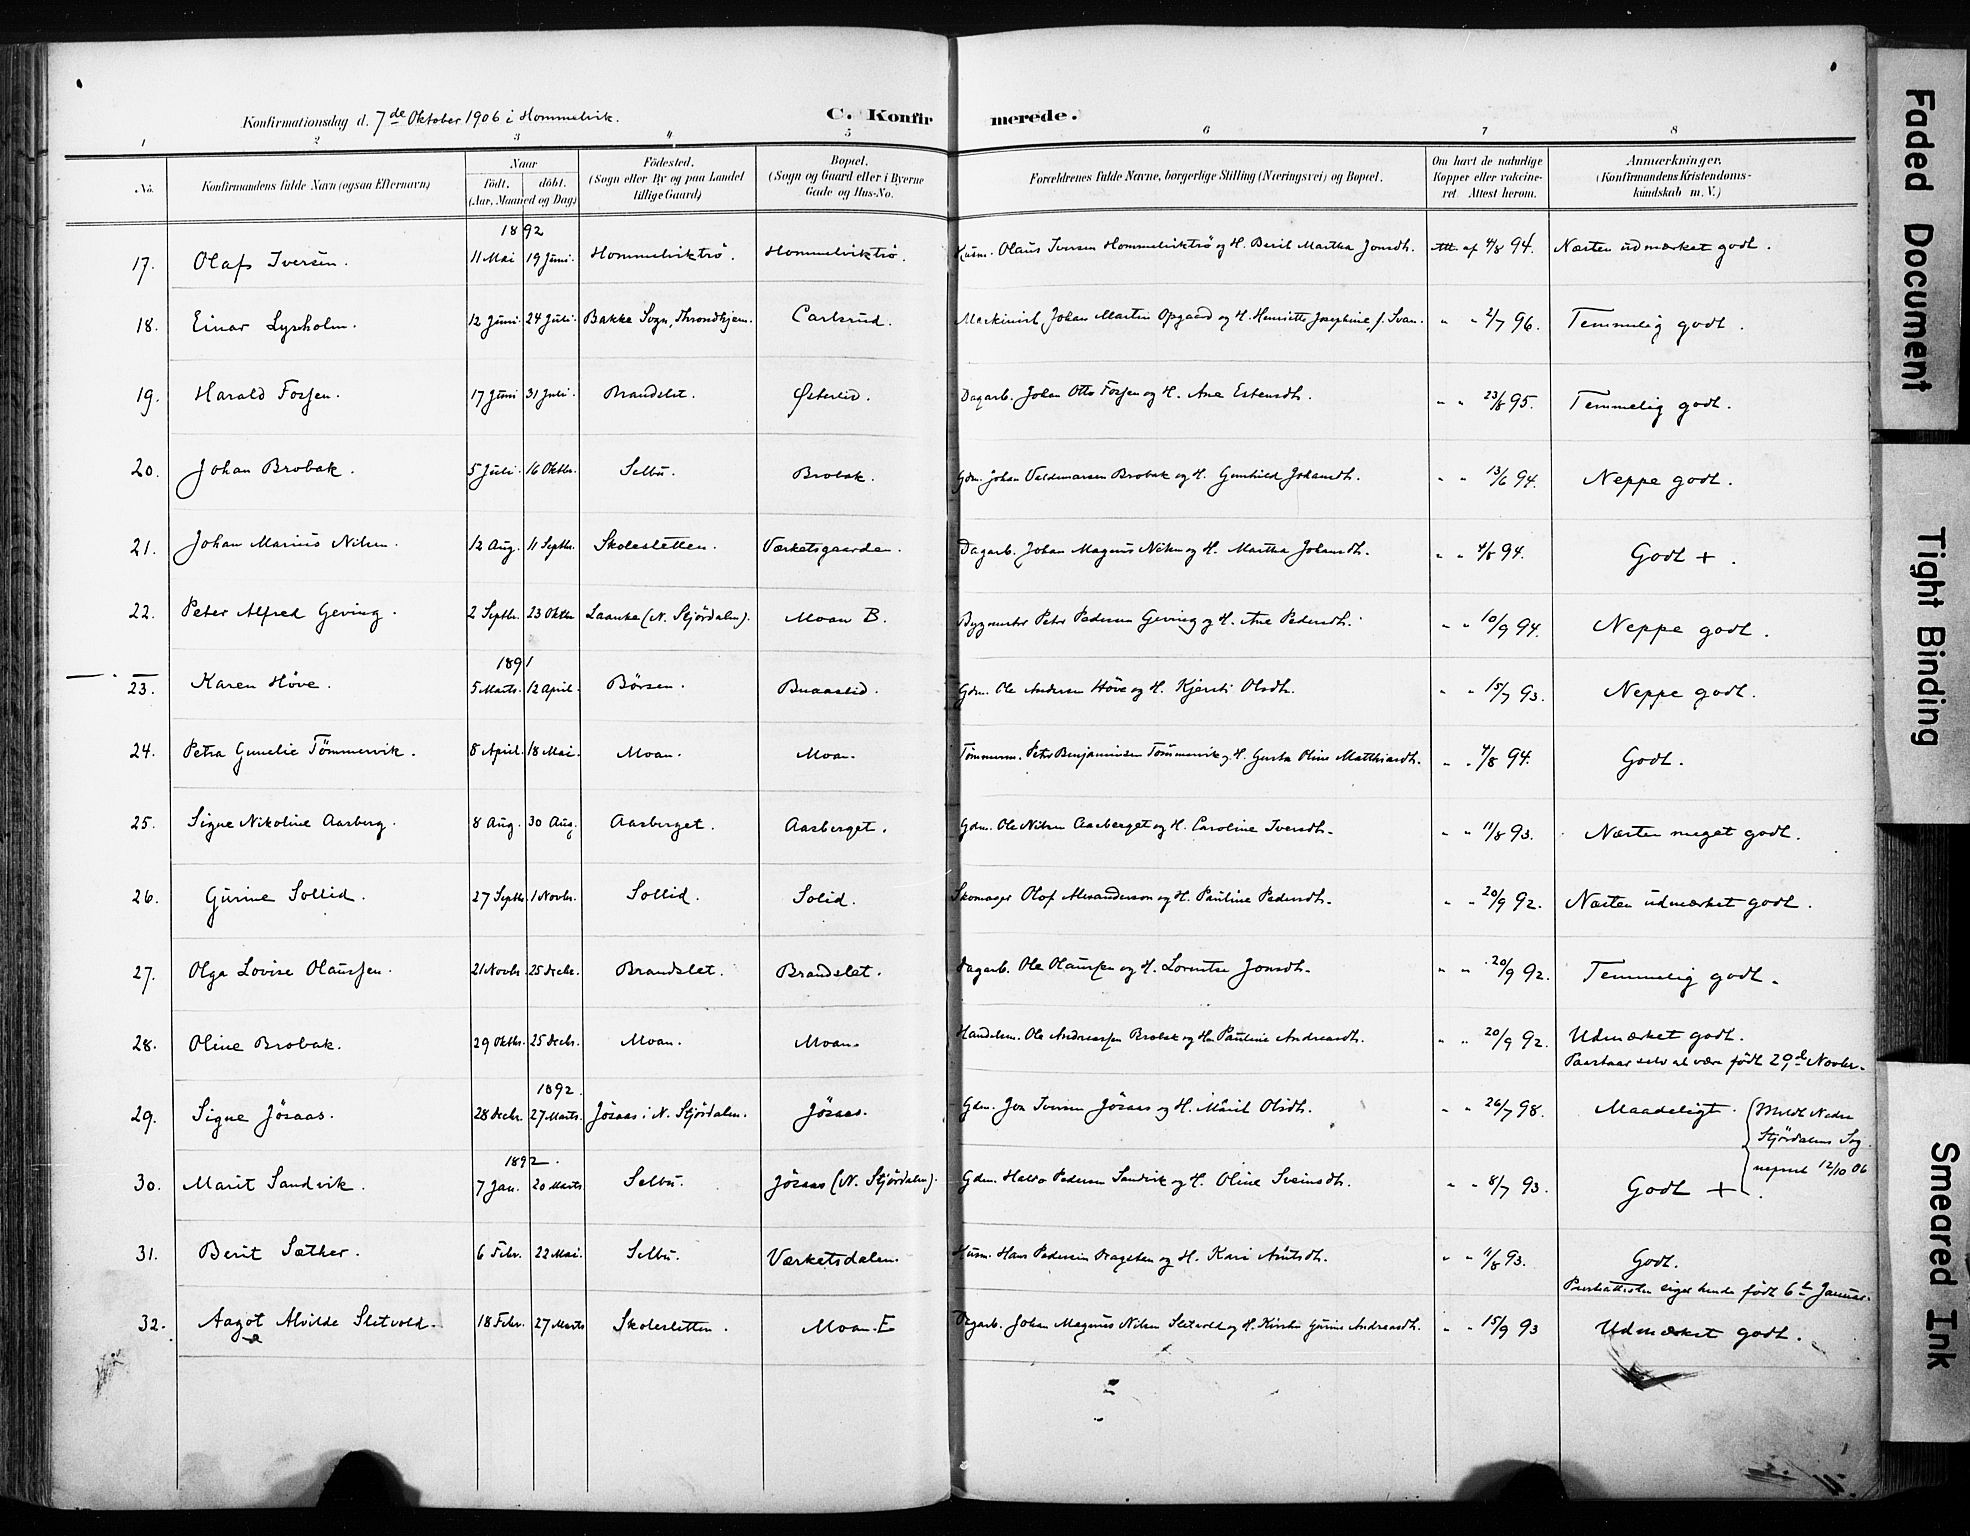 Konfirmationsdag d. 7de Oktober 1906 i Hommelvik.
C. Konfirmerede.
1 2 3 4 5 6 7 8
No. Konfirmandens fulde Navn (ogsaa Efternavn) Naar födt. döbt. (Aar, Maaned og Dag) Födested. (Sogn eller By og paa Landet tillige Gaard) Bopæl. (Sogn og Gaard eller i Byerne Gade og Hus-No. Forældrenes fulde Navne, borgerlige Stilling (Næringsvei) og Bopæl. Om havt de naturlige Kopper eller vakcineret. Attest herom. Anmærkninger. (Konfirmandens Kristendomskundskab m. V.)
1892
17. Olaf Iversen. 11 Mai 19 Juni. Hommelviktrö. Hommelviktrö. Husm. Olaus Iversen Hommelviktrö og H. Berit Martha Jonsdt. Att. af 4/8 94. Næsten udmærket godt.
18. Einar Lysholm. 12 Juni. 24 Juli. Bakke Sogn, Throndhjem. Carlsrud. Maskinist Johan Martin Opgaard og H. Henriette Josephine f. Svan. " " 2/7 96. Temmelig godt.
19. Harald Fossen. 17 Juni 31 Juli. Brandslet. Østerlid. Dagarb. Johan Otto Fossen og H. Ane Estensdt. " " 23/8 95. Temmelig godt.
20. Johan Brobak. 5 Juli. 16 Oktbr. Selbu. Brobak. Gdm. Johan Valdemarsen Brobak og H. Gunhild Johansdt. " " 13/6 94. Neppe godt.
21. Johan Marius Nilsen. 12 Aug. 11 Septbr. Skolesletten. Værketsgaarden. Dagarb. Johan Magnus Nilsen og H. Martha Johansdt. " " 4/8 94. Godt +.
22. Peter Alfred Geving. 2 Septbr. 23 Oktbr. Laanke (N. Stjördalen). Moan B. Bygmester Peter Pedersen Geving og H. Ane Pedersdt. " " 10/9 94. Neppe godt.
1891
23. Karen Höve. 5 Marts. 12 April. Börsen. Buaaslid. Gdm. Ole Andersen Höve og H. Kjersti Olsdt. " " 15/7 93. Neppe godt.
24. Petra Gunelie Tömmervik. 8 April. 18 Mai. Moan. Moan. Tömmerm. Peter Benjaminsen Tömmervik og H. Gusta Oline Matthiasdt. " " 4/8 94. Godt.
25. Signe Nikoline Aasberg. 8 Aug. 30 Aug. Aasberget. Aasberget. Gdm. Ole Nilsen Aasberget og H. Caroline Iversdt. " " 11/8 93. Næsten meget godt.
26. Gurine Sollid. 27 Septbr. 1 Novbr. Sollid. Solid. Skomager Olof Alexanderson og H. Pauline Pedersdt. " " 20/9 92. Næsten udmærket godt.
27. Olga Lovise Olaussen. 21 Novbr. 25 Decbr. Brandslet. Brandslet. Dagarb. Ole Olaussen og H. Lorentse Jonsdt. " " 20/9 92. Temmelig godt.
28. Oline Brobak. 29 Oktbr. 25 Decbr. Moan. Moan. Handelsm. Ole Andreassen Brobak og H. Pauline Andreasdt. " " 20/9 92. Udmærket godt.
Paastaar selv at være födt 29de Novbr.
1892.
29. Signe Jösaas. 28 Decbr. 27 Marts. Jösaas i N. Stjördalen. Jösaas. Gdm. Jon Iversen Jösaas og H. Marit Olsdt. " " 26/7 98. Maadeligt. Meldt Nedre Stjördalens Sognepræst 12/10 06
1892.
30. Marit Sandvik. 7 Jan. 20 Marts Selbu. Jösaas (N. Stjördalen). Gdm. Haldo Pedersen Sandvik og H. Oline Sveinsdt. " " 8/7 93. Godt +.
31. Berit Sæther. 6 Febr. 22 Mai. Selbu. Værketsdalen. Husm. Hans Pedersen Dragsten og H. Kari Arntsdt. " " 11/8 93. Godt.
Præsteattesten siger hende födt 6te Januar.
32. Aagot Alvilde Sletvold. 18 Febr. 27 Marts Skolesletten. Moan E Dagarb. Johan Magnus Nilsen Sletvold og H. Kirstine Gurine Andreasdt. " " 15/9 93 Udmærket godt.
Faded Document
Tight Binding
Smeared Ink